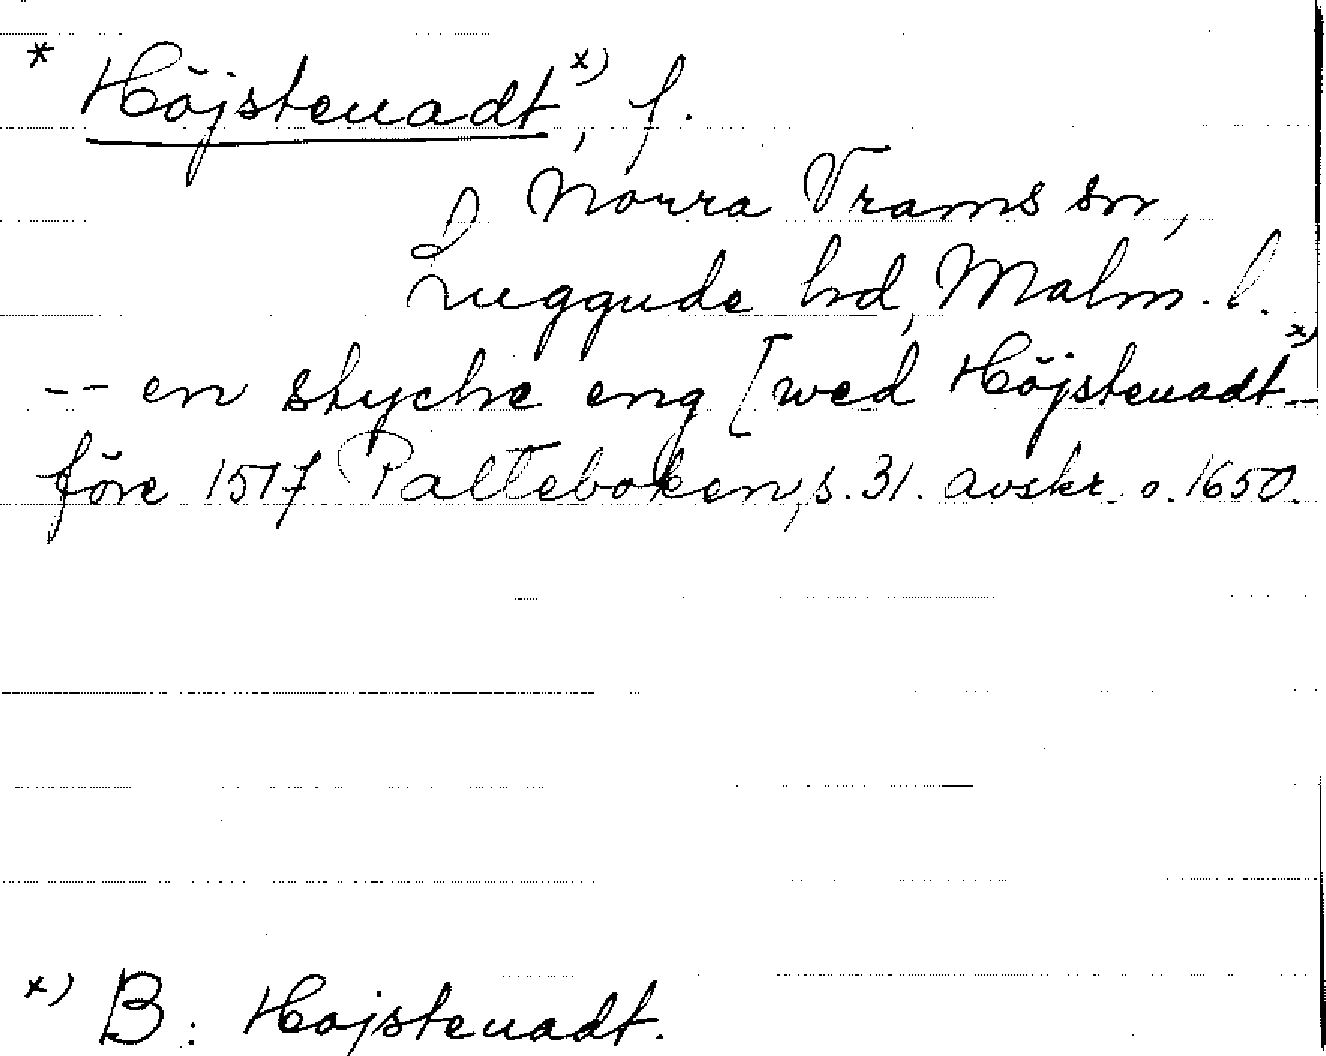 * Höjsteuadt x), f.
Norra Vrams sn,
Luggude hd, Malm. l.
-- en stycke eng [wed Höjsteuadt x) -
före 1517 Palteboken, s. 31. avskr. o. 1650.
x) B: Hojsteuadt.